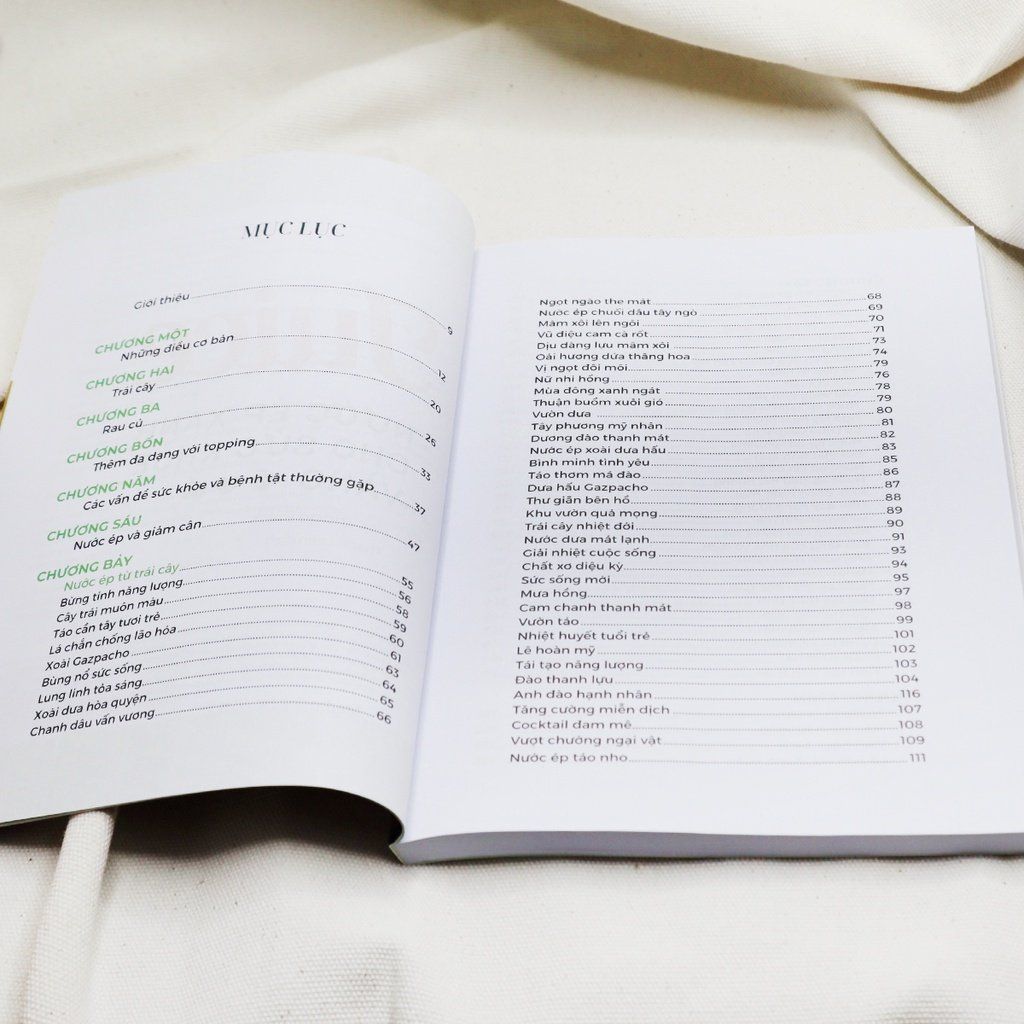 MỤC LỤC
Giới thiệu 9
CHƯƠNG MỘT
Những điều cơ bản 12
CHƯƠNG HAI
Trái cây 20
CHƯƠNG BA
Rau củ 26
CHƯƠNG BỐN
Thêm đa dạng với topping 33
CHƯƠNG NĂM
Các vấn đề sức khỏe và bệnh tật thường gặp 37
CHƯƠNG SÁU
Nước ép và giảm cân 47
CHƯƠNG BẢY
Nước ép từ trái cây 55
Bừng tỉnh năng lượng 56
Cây trái muôn màu 58
Táo cần tây tươi trẻ 59
Lá chắn chống lão hóa 60
Xoài Gazpacho 61
Bùng nổ sức sống 63
Lung linh tỏa sáng 64
Xoài dưa hòa quyện 65
Chanh dâu vấn vương 66
Ngọt ngào the mát 68
Nước ép chuối dâu tây ngò 69
Mâm xôi lên ngôi 70
Vũ điệu cam cà rốt 71
Dịu dàng lựu mâm xôi 73
Oải hương dứa thăng hoa 74
Vị ngọt đôi môi 79
Nữ nhi hồng 76
Mùa đông xanh ngát 78
Thuận buồm xuôi gió 79
Vườn dưa 80
Tây phương mỹ nhân 81
Dương đào thanh mát 82
Nước ép xoài dưa hấu 83
Bình minh tình yêu 85
Táo thơm má đào 86
Dưa hấu Gazpacho 87
Thư giãn bên hồ 88
Khu vườn quả mọng 89
Trái cây nhiệt đới 90
Nước dưa mát lạnh 91
Giải nhiệt cuộc sống 93
Chất xơ diệu kỳ 94
Sức sống mới 95
Mưa hồng 97
Cam chanh thanh mát 98
Vườn táo 99
Nhiệt huyết tuổi trẻ 101
Lê hoàn mỹ 102
Tái tạo năng lượng 103
Đào thanh lựu 104
Anh đào hạnh nhân 116
Tăng cường miễn dịch 107
Cocktail đam mê 108
Vượt chướng ngại vật 109
Nước ép táo nho 111